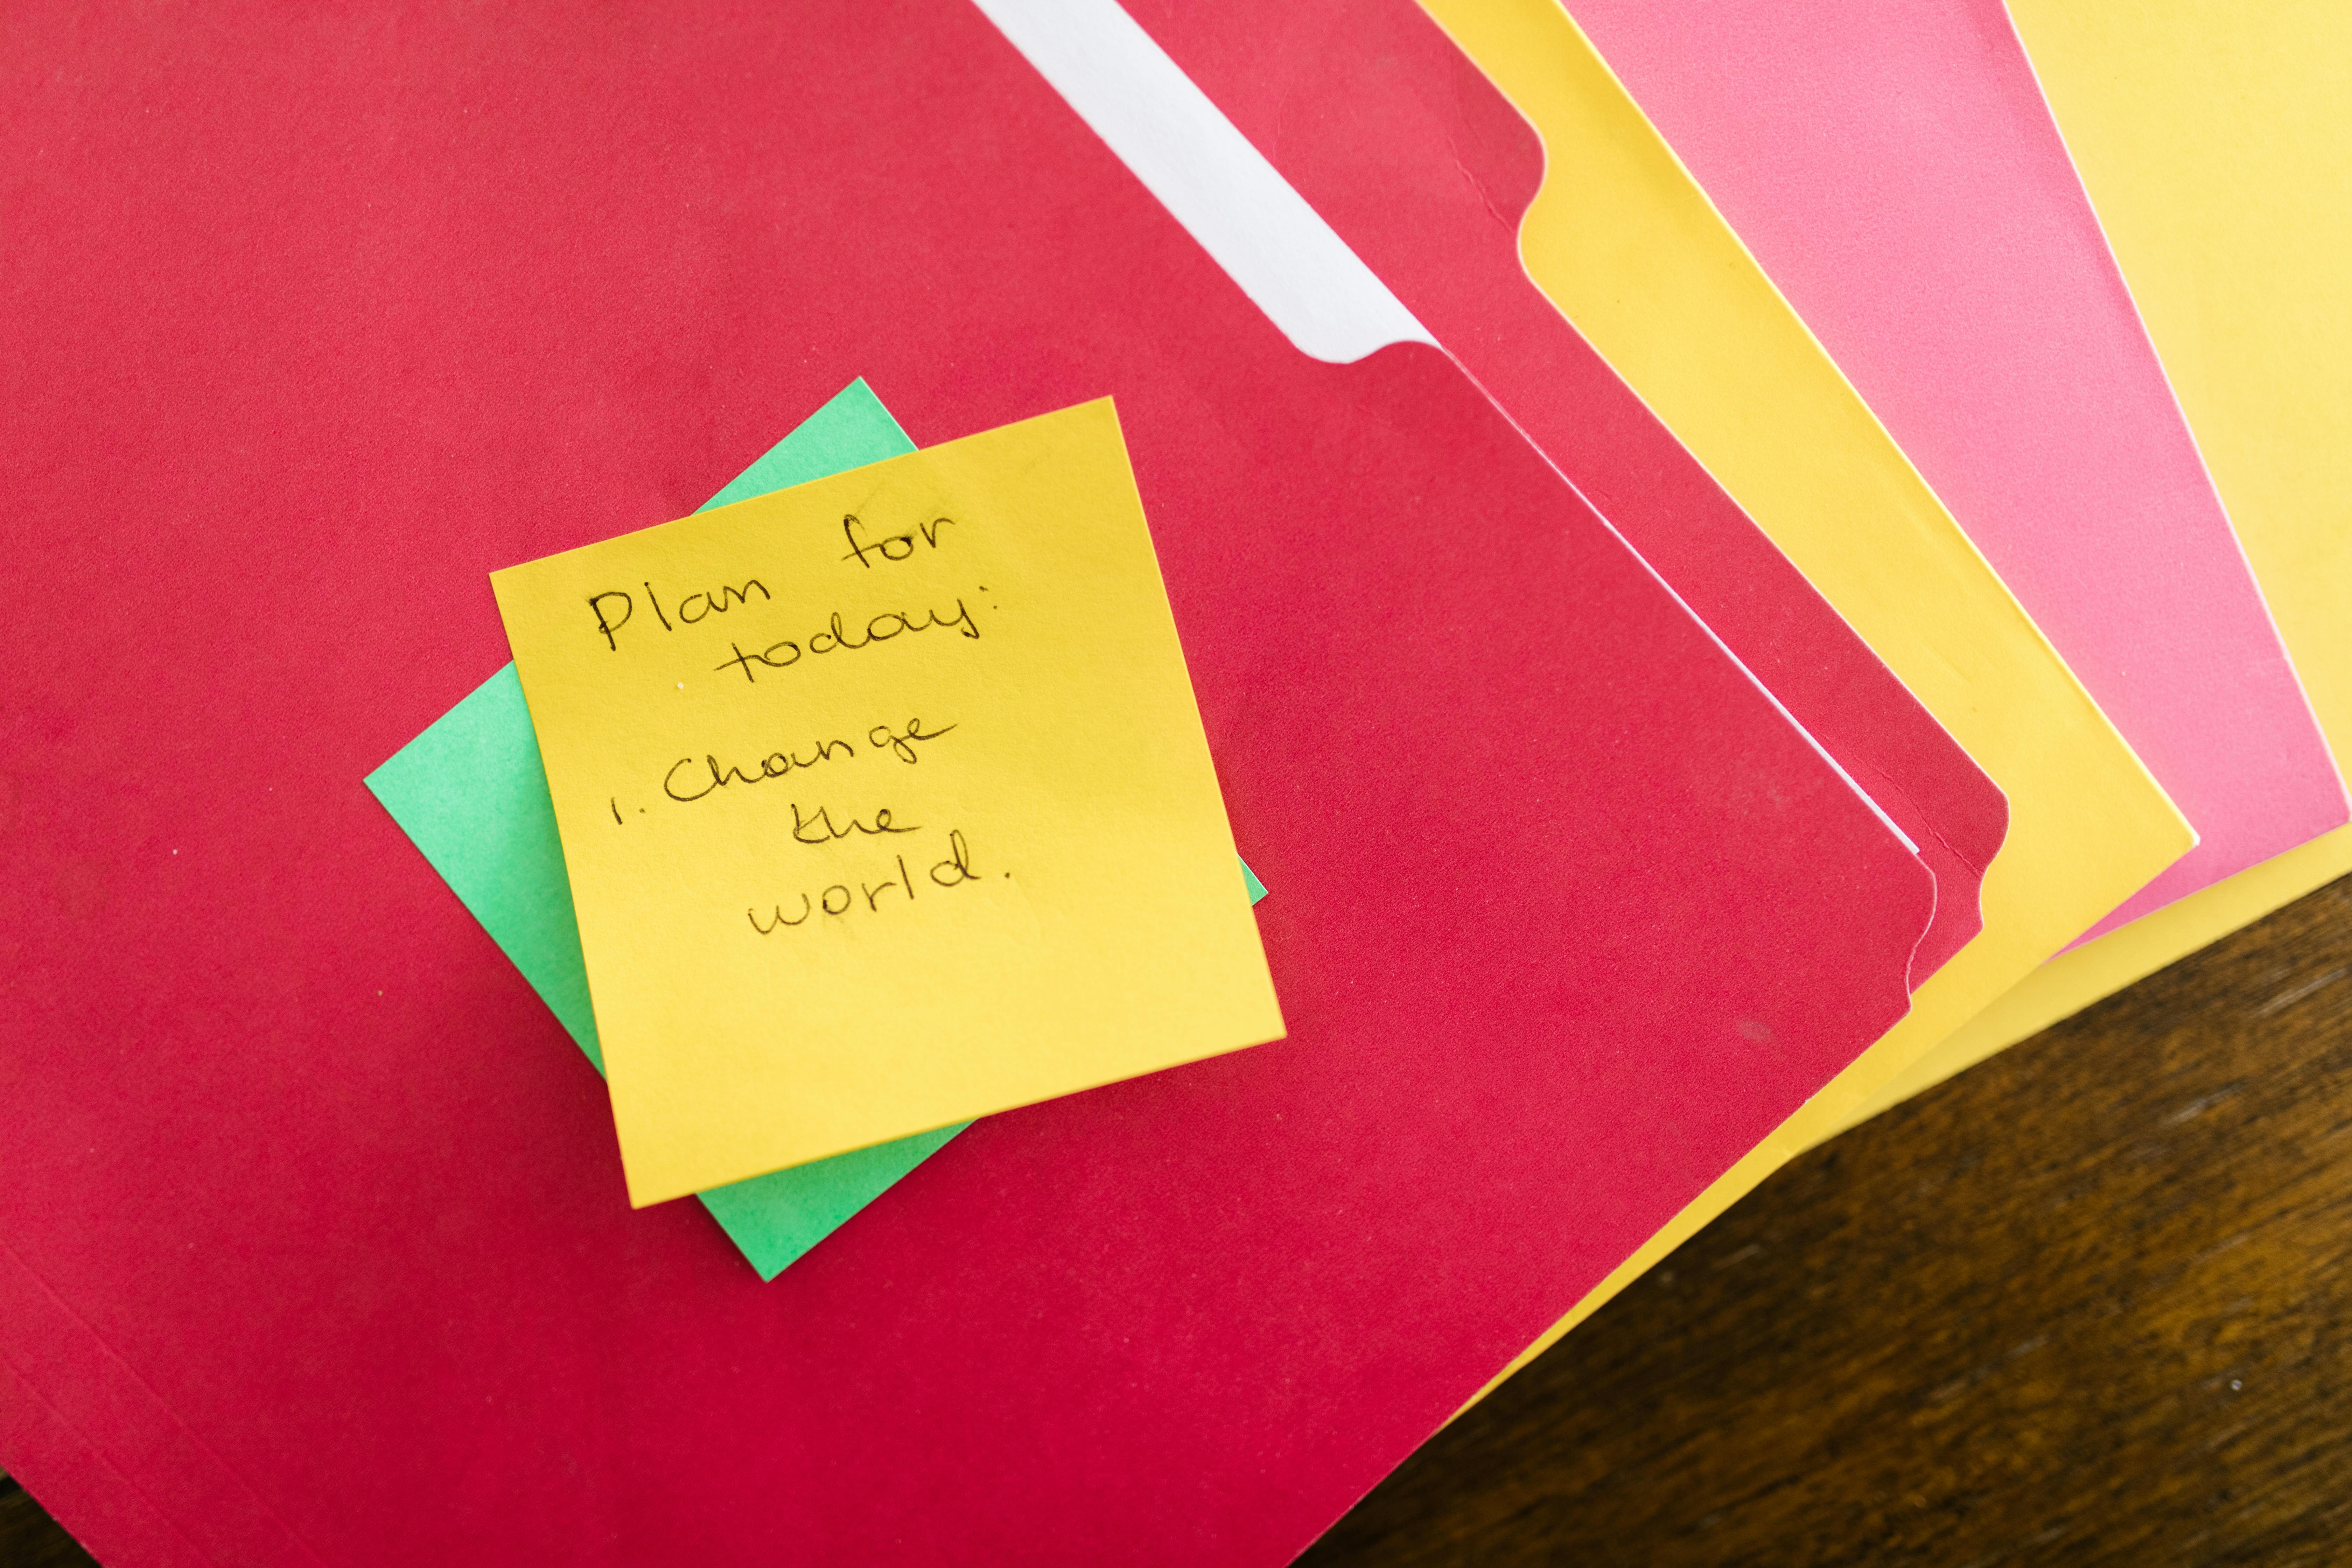 Plan for
today:
1. Change
the
world.